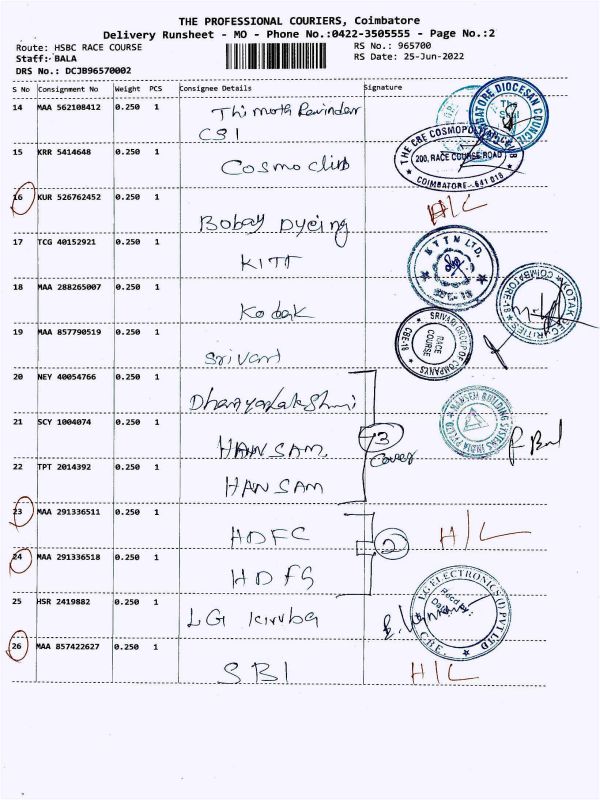 THE PROFESSIONAL COURIERS, Coimbatore
Delivery Runsheet - MO - Phone No.:0422-3505555 - Page No.:2
Route: HSBC RACE COURSE
RS No.: 965700
Staff: BALA
RS Date: 25-Jun-2022
DRS No.: DCJB96570002
S No Consignment No Weight PCS Consignee Details Signature
14 MAA 562108412 0.250 1 Thimoth Ravinder
CSI
COIMBATORE DIOCESAN COUNCIL
15 KRR 5414648 0.250 1 Cosmo club
THE CBE COSMOPOLITAN CLUB
200, RACE COURSE ROAD
COIMBATORE - 641 018
16 KUR 526762452 0.250 1 Bobay Dyeing H/C
17 TCG 40152921 0.250 1 KITT
K T T M LTD.
18 MAA 288265007 0.250 1 Kodak
KOTAK SECURITIES
COIMBATORE-18
19 MAA 857790519 0.250 1 Srivari
SRIVARI GROUP OF COMPANYS
CBE-18
RACE COURSE
20 NEY 40054766 0.250 1 Dhanyalakshmi
21 SCY 1004074 0.250 1 HANSAM
3
cover
22 TPT 2014392 0.250 1 HANSAM
23 MAA 291336511 0.250 1 HDFC H/C
2
24 MAA 291336518 0.250 1 HDFS
25 HSR 2419882 0.250 1 LG kirruba
LG ELECTRONICS (I) PVT LTD
CBE.
26 MAA 857422627 0.250 1 SBI H/C